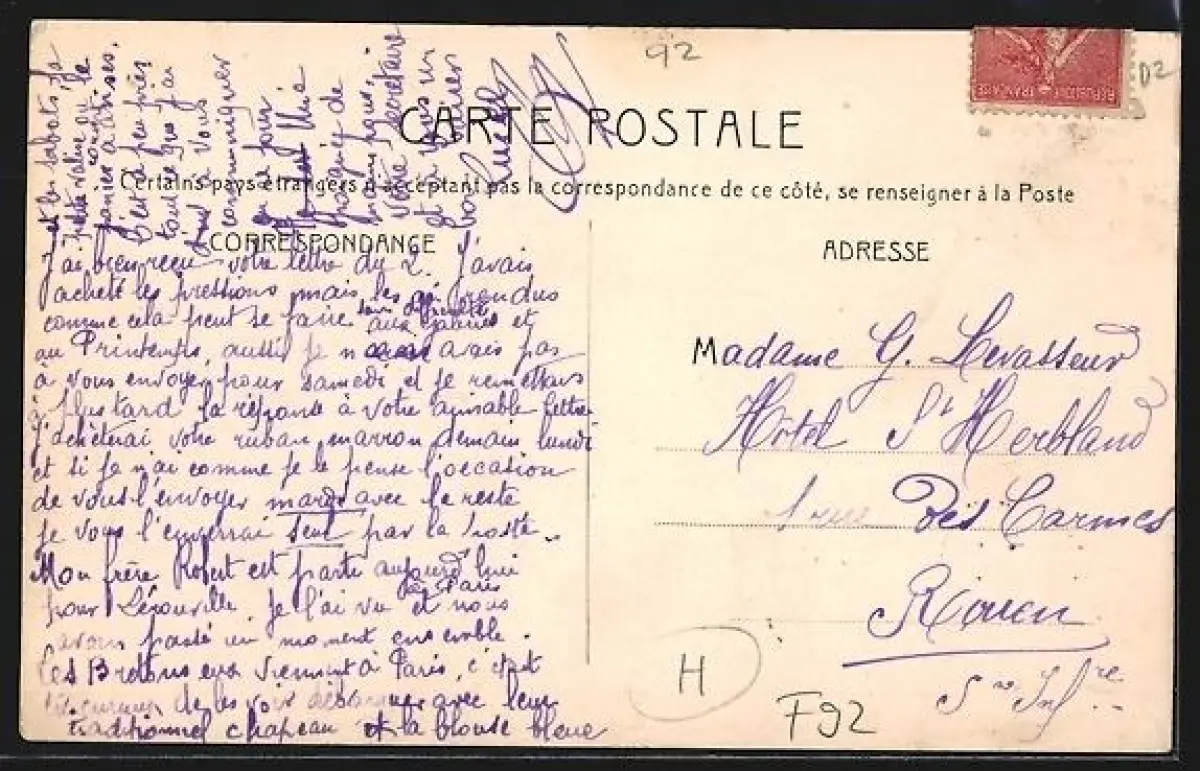 92
D2
RÉPUBLIQUE FRANÇAISE
CARTE POSTALE
Certains pays étrangers n'acceptant pas la correspondance de ce côté, se renseigner à la Poste
CORRESPONDANCE
ADRESSE
J'ai bien reçu votre lettre du 2. J'avais
acheté les pressions mais les ai rendus
comme cela peut se faire sans difficulté aux Galeries et
au Printemps, aussi je n'avais pas
à vous envoyer pour samedi et je remettais
à plus tard la réponse à votre aimable lettre
J'achèterai votre ruban marron demain lundi
et si je n'ai comme je le pense l'occasion
de vous l'envoyer mardi avec le reste
je vous l'enverrai seul par la poste..
Mon frère Robert est parti aujourd'hui
pour Lérouville. Je l'ai vu à Paris et nous
avons passé un moment ensemble.
Les Bretons viennent à Paris, c'est
de les voir débarquer avec leur
traditionnel chapeau et la blouse bleue
et les sabots, la
petite valise ou le
panier à anses.
C'est à peu près
tout ce que j'ai
à vous
communiquer
ce jour
Votre secrétaire
et à vous un
bon baiser
Madame G. Levasseur
Hôtel St Herbland
1 rue Des Carmes
Rouen
Sne Infre
H
F92